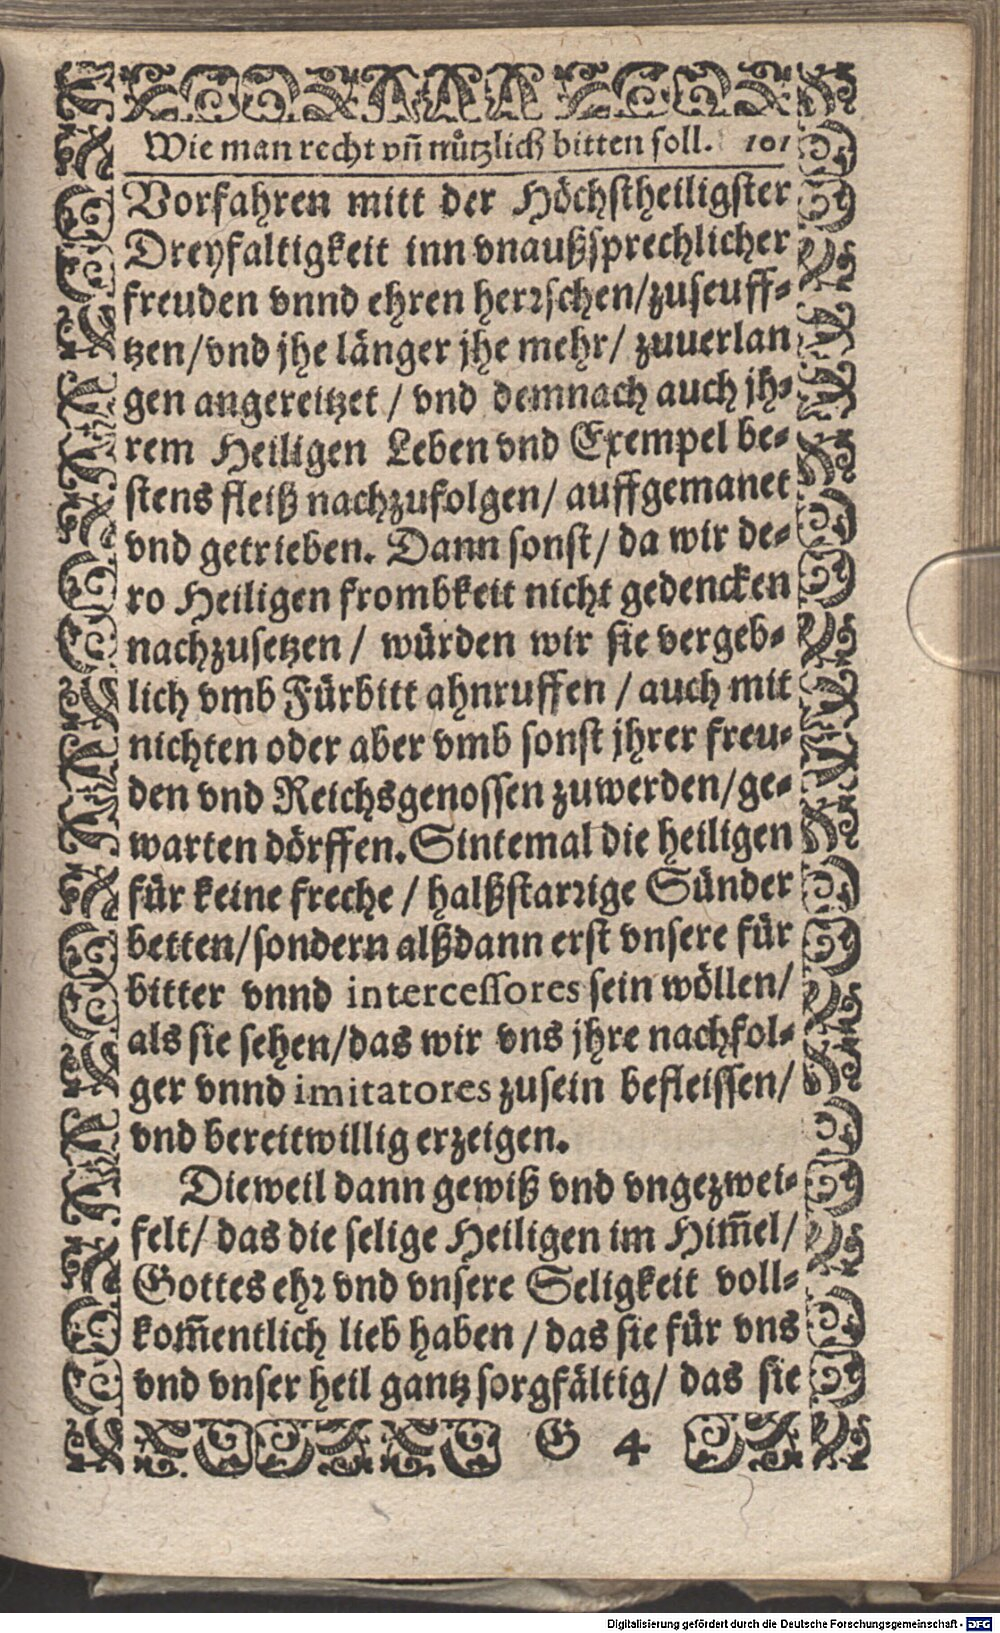 Wie man recht vñ nůtzlich bitten soll. 101
Vorfahren mitt der Höchstheiligster
Dreyfaltigkeit inn vnaußsprechlicher
freuden vnnd ehren herꝛschen/zuseuff⸗
tzen/vnd jhe länger jhe mehr/ zuuerlan
gen angereitzet / vnd demnach auch jh⸗
rem Heiligen Leben vnd Exempel be⸗
stens fleiß nachzufolgen/ auffgemanet
vnd getrieben. Dann sonst/ da wir de⸗
ro Heiligen frombkeit nicht gedencken
nachzusetzen / würden wir sie vergeb⸗
lich vmb Fürbitt ahnruffen / auch mit
nichten oder aber vmb sonst jhrer freu⸗
den vnd Reichsgenossen zuwerden/ge⸗
warten dörffen. Sintemal die heiligen
für keine freche / halßstarꝛige Sünder
betten/sondern alßdann erst vnsere für
bitter vnnd intercessores sein wöllen/
als sie sehen/das wir vns jhre nachfol⸗
ger vnnd imitatores zusein befleissen/
vnd bereitwillig erzeigen.
Dieweil dann gewiß vnd vngezwei⸗
felt/ das die selige Heiligen im Him̃el/
Gottes ehꝛ vnd vnsere Seligkeit voll⸗
kom̃entlich lieb haben / das sie für vns
vnd vnser heil gantz sorgfältig/ das sie
G 4
Digitalisierung gefördert durch die Deutsche Forschungsgemeinschaft - DFG